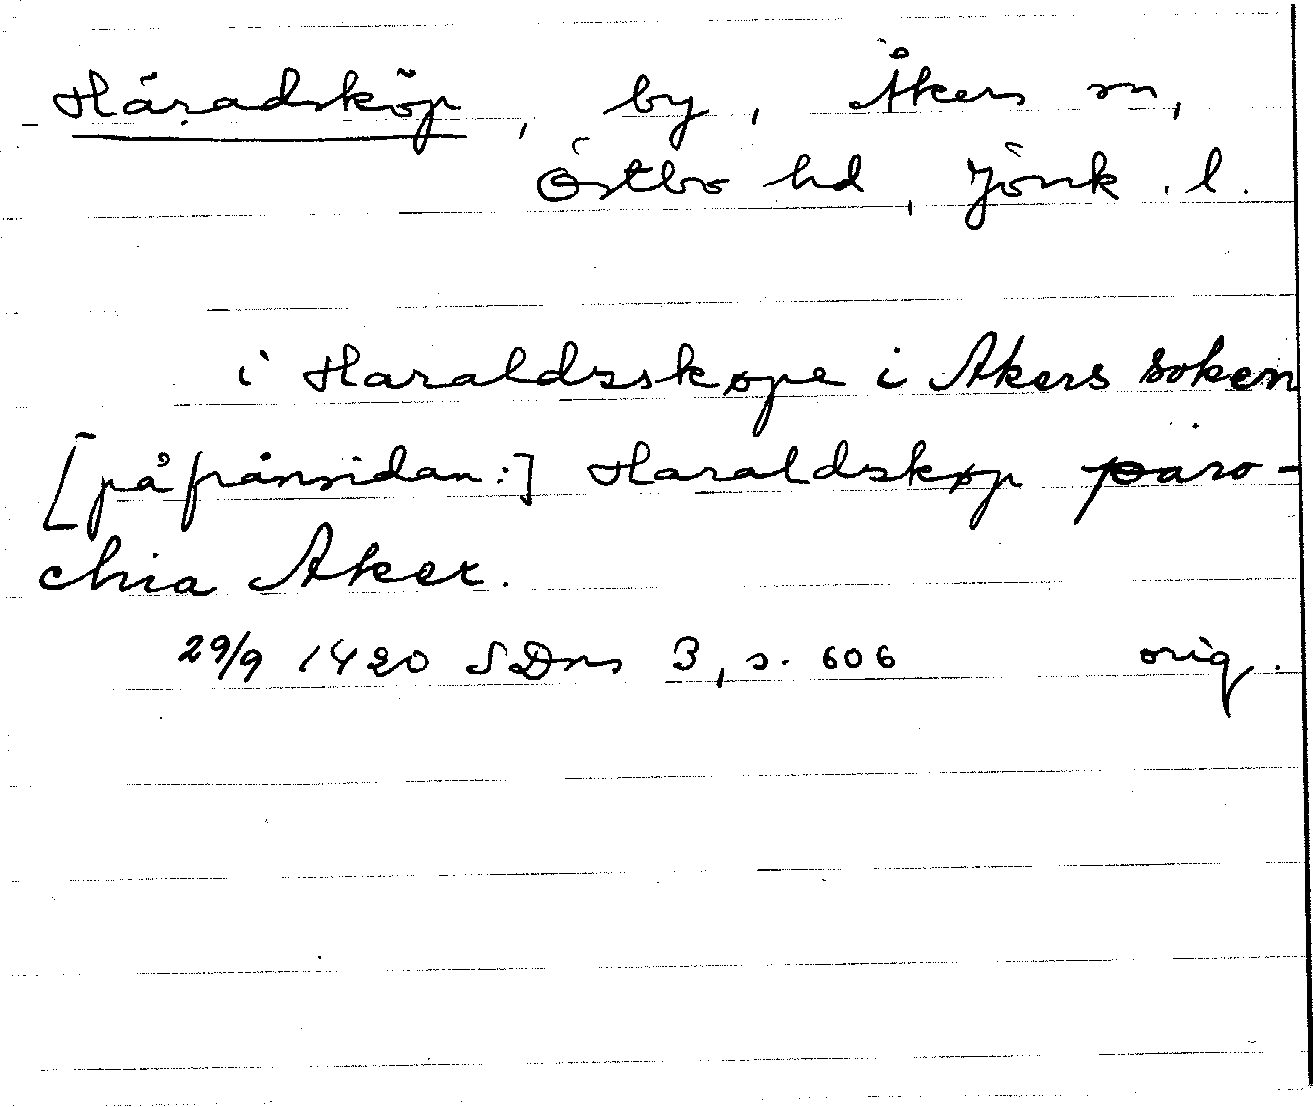 Häradsköp, by, Åkers sn,
Östbo hd, Jönk. l.
i Haraldzskøpe i Akers soken
[på frånsidan:] Haraldzkøp paro-
chia Aker.
29/9 1420 SDns 3, s. 606 orig.